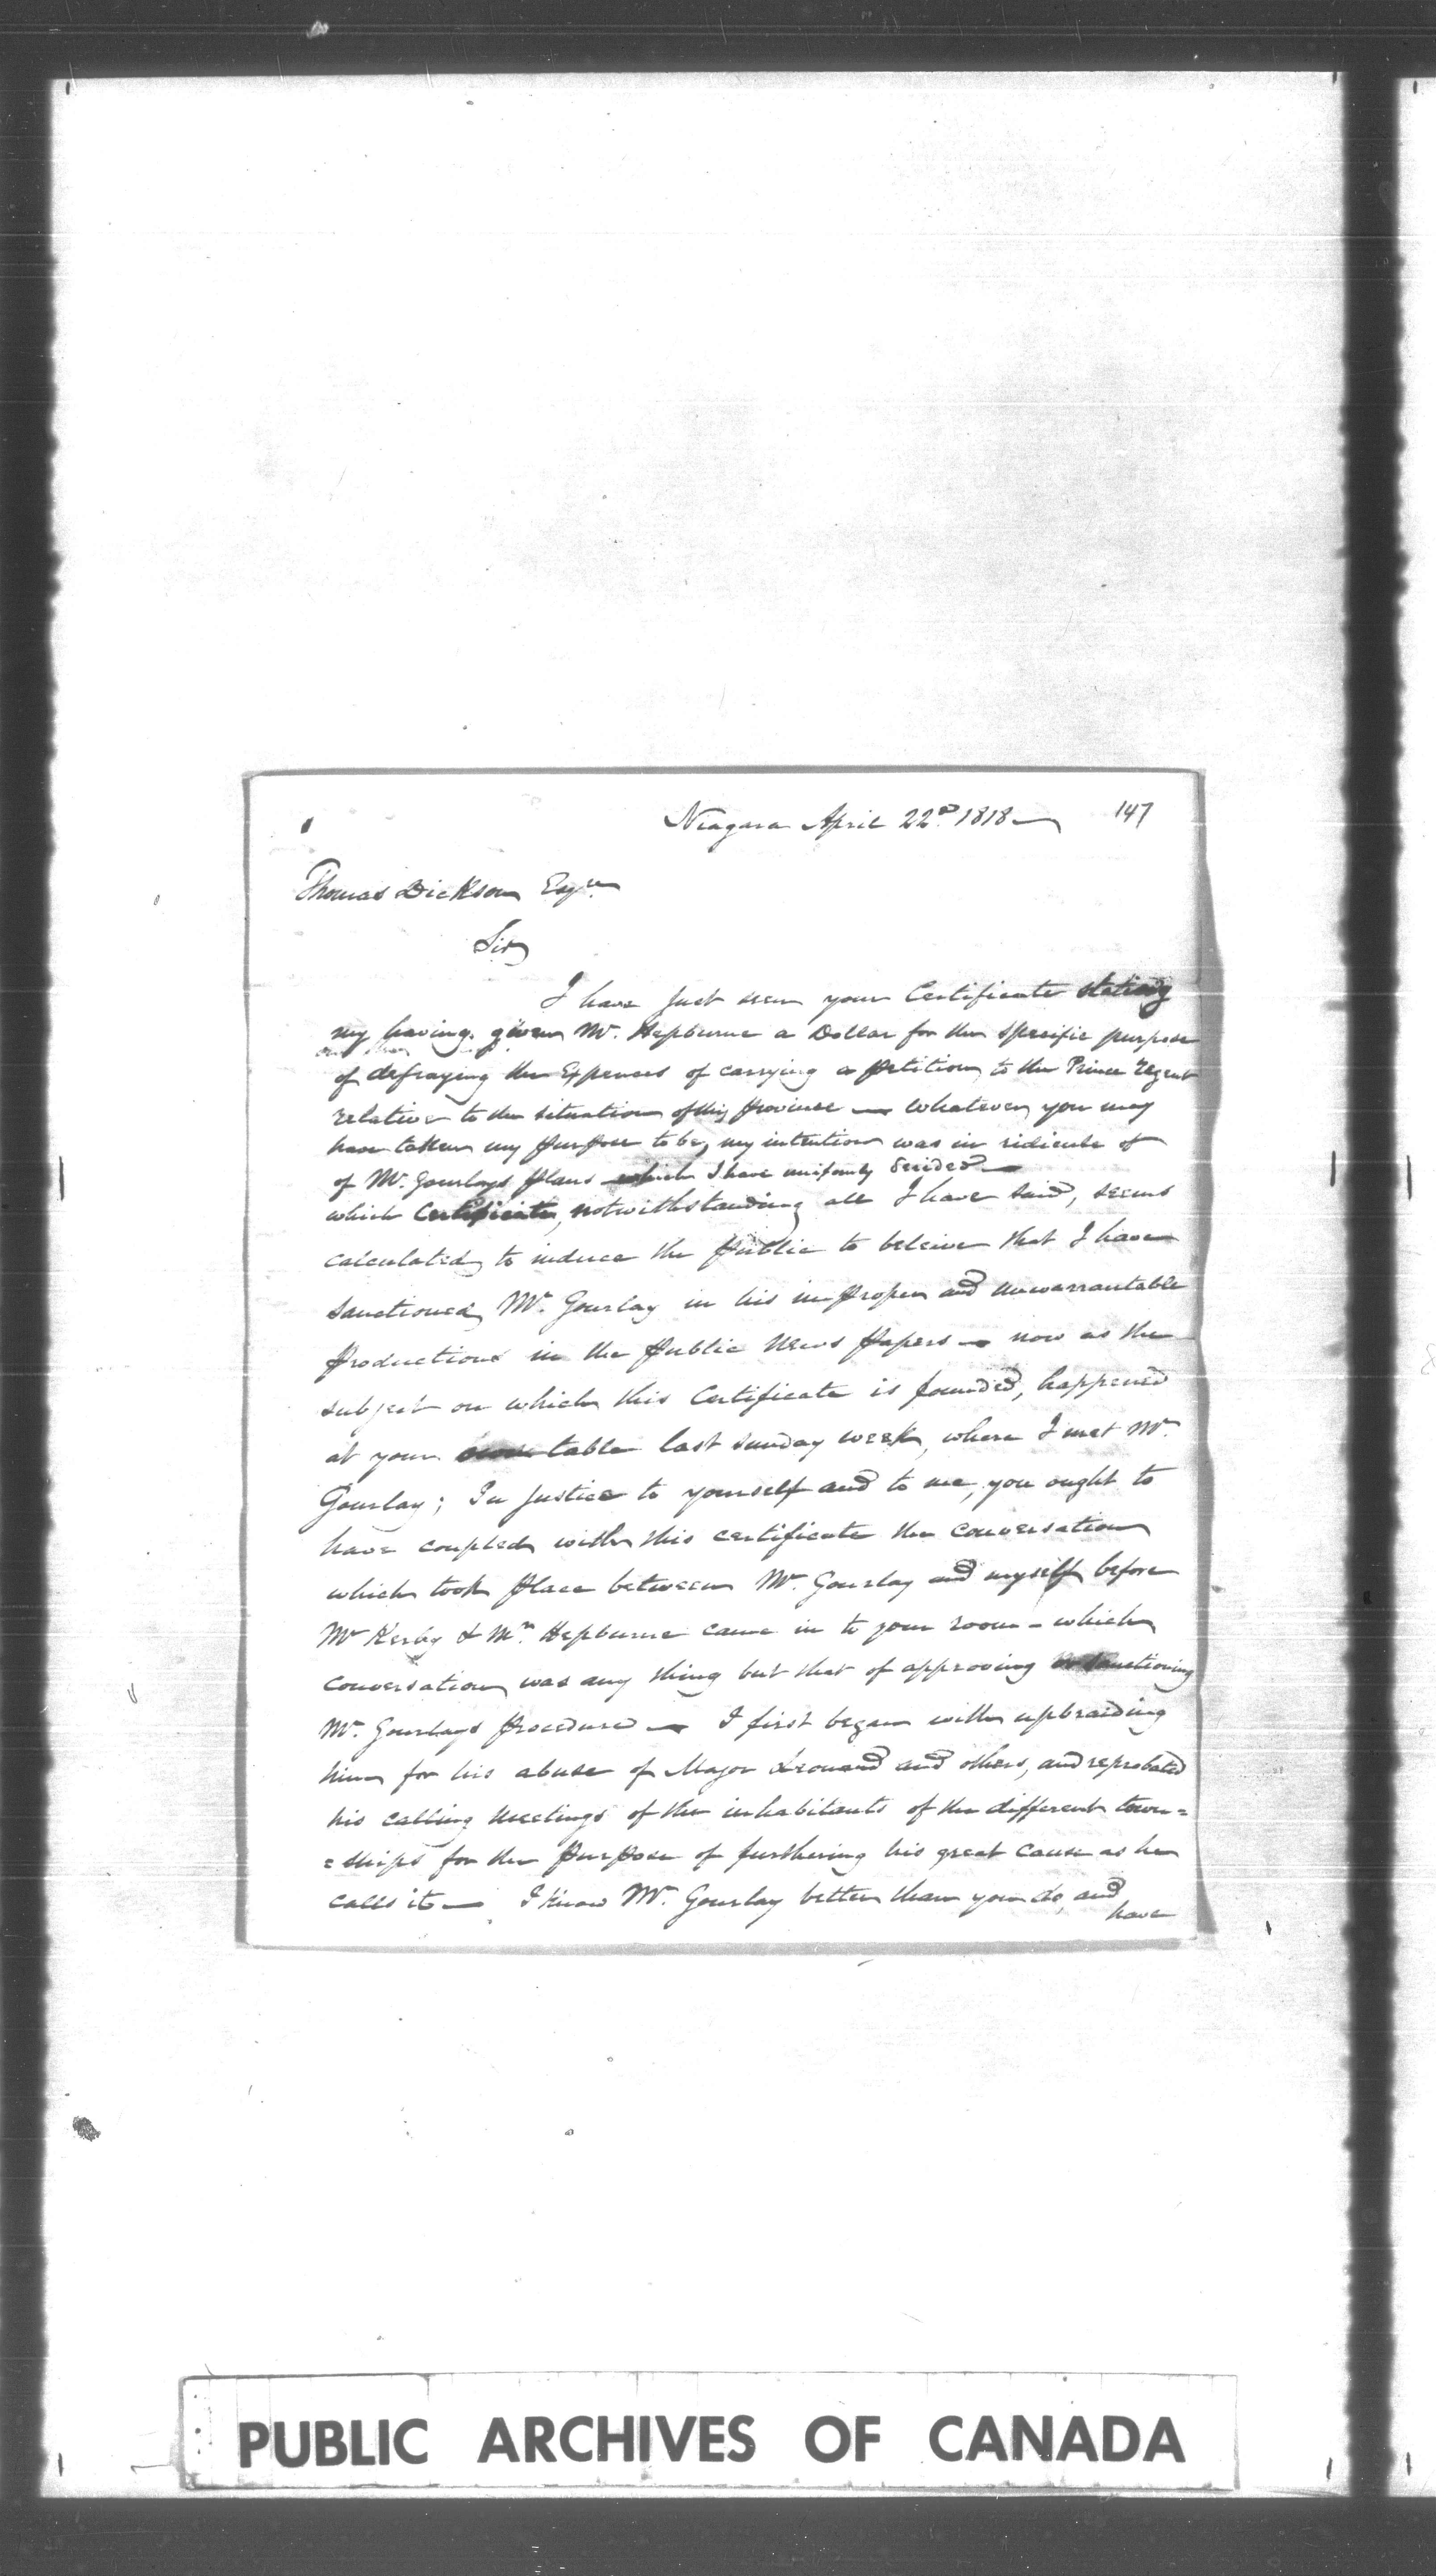 Niagara April 22d. 1818 —
147
Thomas Dickson Esqre
Sir
I have just seen your Certificate stating
my having given Mr. Hepburne a Dollar for the specific purpose
of defraying the Expences of carrying a petition to the Prince Regent
relative to the situation of this province — Whatever you may
have taken my purpose to be, my intention was in ridicule of
of Mr. Gourlays plans which I have uniformly derided —
which Certificate, notwithstanding all I have said, seems
calculated to induce the public to beleive that I have
sanctioned Mr. Gourlay in his improper and unwarrantable
productions in the public News papers — now as the
subject on which this Certificate is founded, happened
at your table last sunday week, where I met Mr.
Gourlay; In justice to yourself and to me, you ought to
have coupled with this certificate the conversation
which took place between Mr. Gourlay and myself before
Mr Kerby & Mr. Hepburne came in to your room - which
conversation was any thing but that of approving or sanctioning
Mr. Gourlays procedure — I first began with upbraiding
him for his abuse of Major Leonard and others, and reprobated
his calling meetings of the inhabitants of the different town=
=ships for the purpose of furthering his great cause as he
calls it — I know Mr. Gourlay better than you do, and
have
PUBLIC ARCHIVES OF CANADA